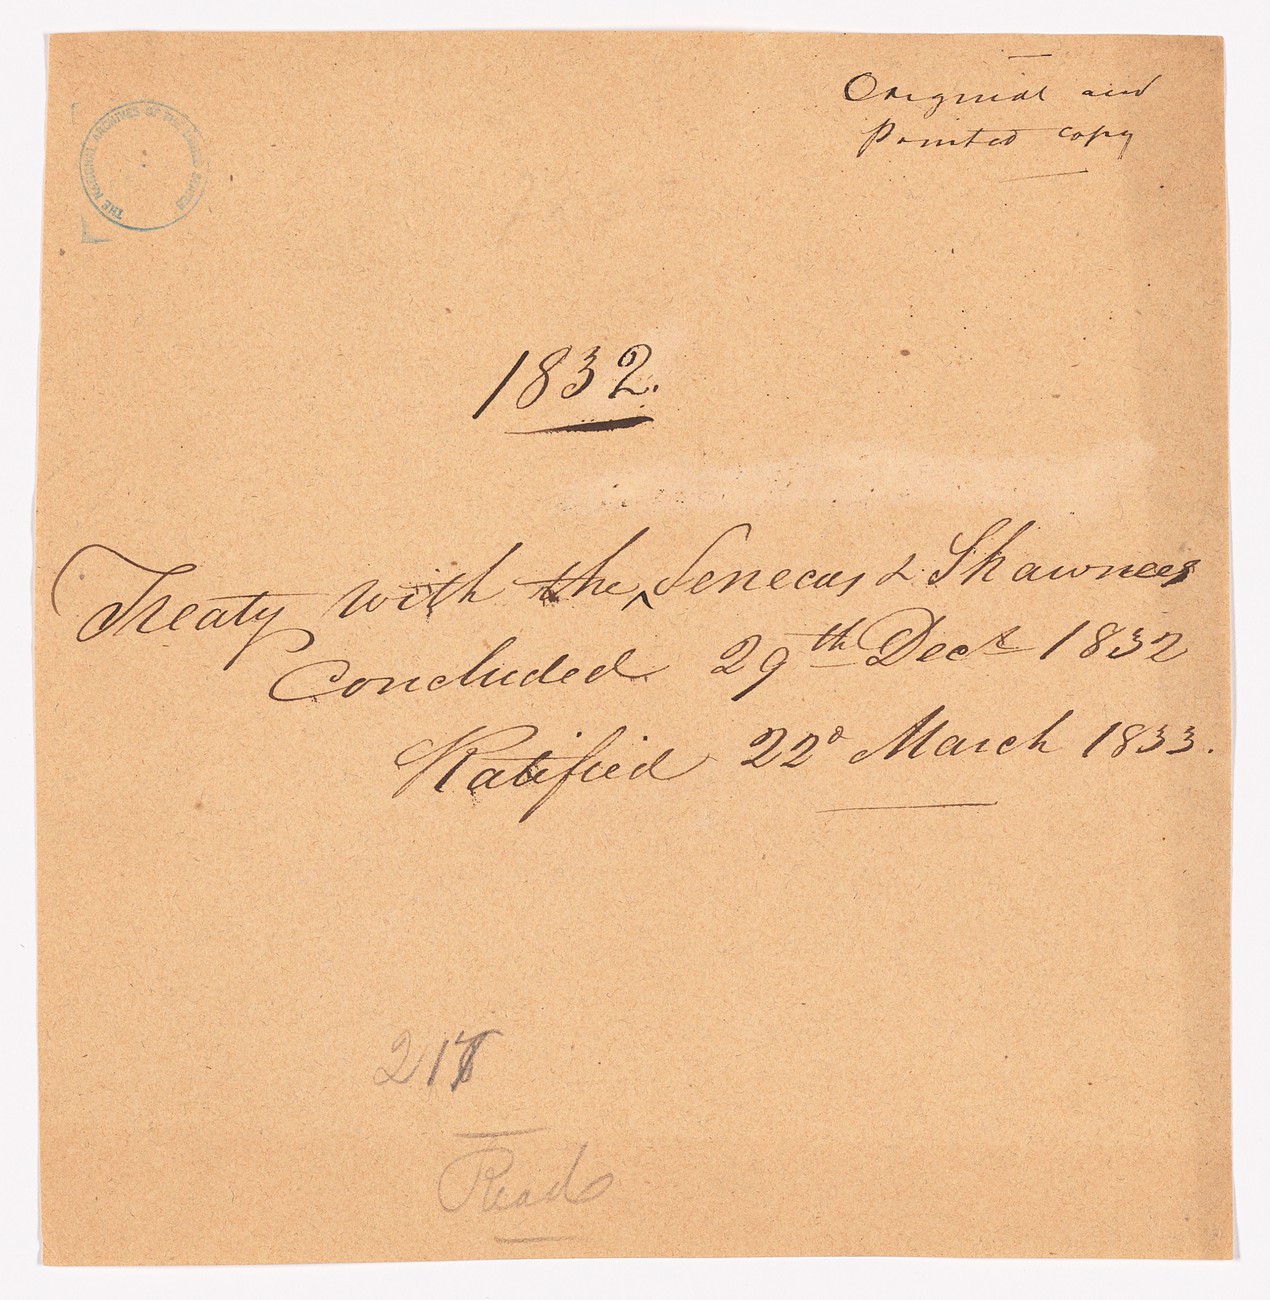 THE NATIONAL ARCHIVES OF THE UNITED STATES
Original and
Printed copy
1832.
Treaty with the ‸ Senecas & Shawnees
Concluded 29th Decr 1832
Ratified 22d March 1833.
217
Read